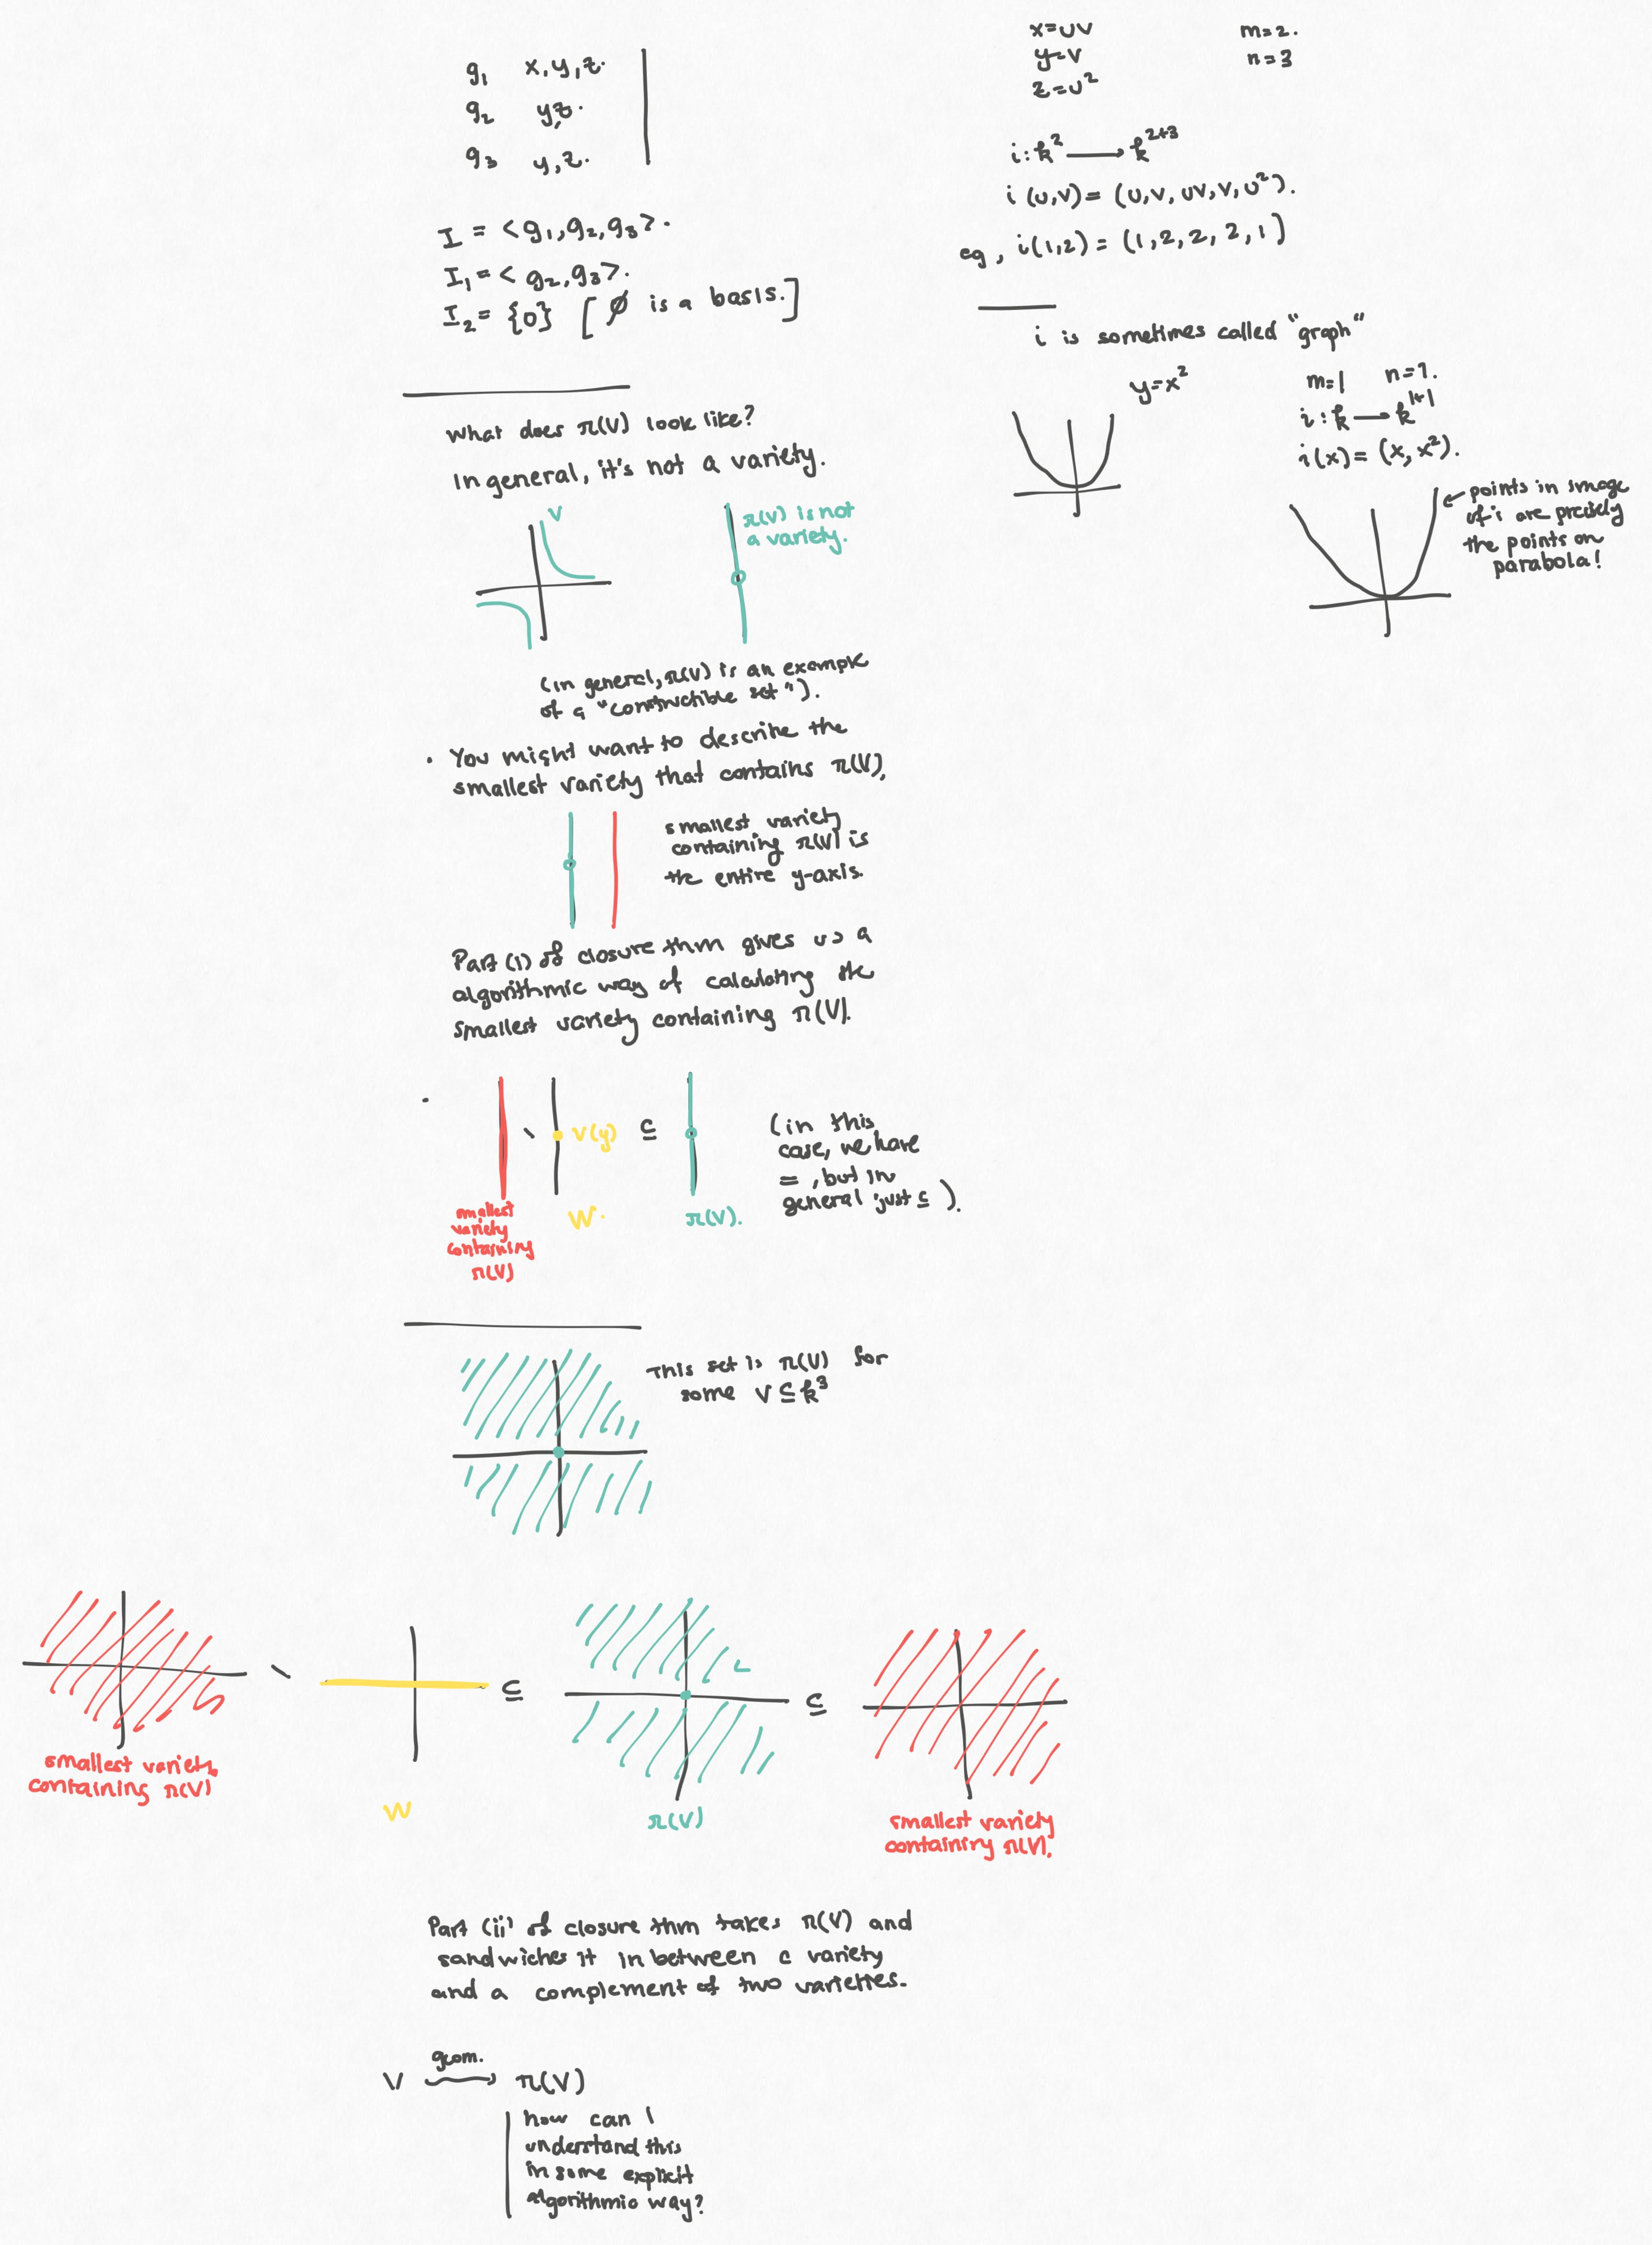 g₁ x,y,z.
g₂ y,z.
g₃ y,z.
I = <g₁,g₂,g₃>.
I₁ = <g₂,g₃>.
I₂ = {0} [∅ is a basis.]
What does π(V) look like?
In general, it's not a variety.
V
π(V) is not
a variety.
(in general, π(V) is an example
of a "constructible set").
• You might want to describe the
smallest variety that contains π(V),
smallest variety
containing π(V) is
the entire y-axis.
Part (i) of closure thm gives us a
algorithmic way of calculating the
smallest variety containing π(V).
•
\ V(y) ⊆
(in this
case, we have
=, but in
general just ⊆).
smallest
variety
containing
π(V)
W.
π(V).
This set is π(V) for
some V⊆k³
\ ⊆ ⊆
smallest variety
containing π(V)
W
π(V)
smallest variety
containing π(V).
Part (ii) of closure thm takes π(V) and
sandwiches it in between a variety
and a complement of two varieties.
V geom. → π(V)
how can I
understand this
in some explicit
algorithmic way?
x=uv m=2.
y=v n=3
z=u²
i:k² → k²⁺³
i(u,v) = (u,v,uv,v,u²).
eg, i(1,2) = (1,2,2,2,1)
i is sometimes called "graph"
y=x²
m=1 n=1.
i:k → k¹⁺¹
i(x) = (x,x²).
← points in image
of i are precisely
the points on
parabola!